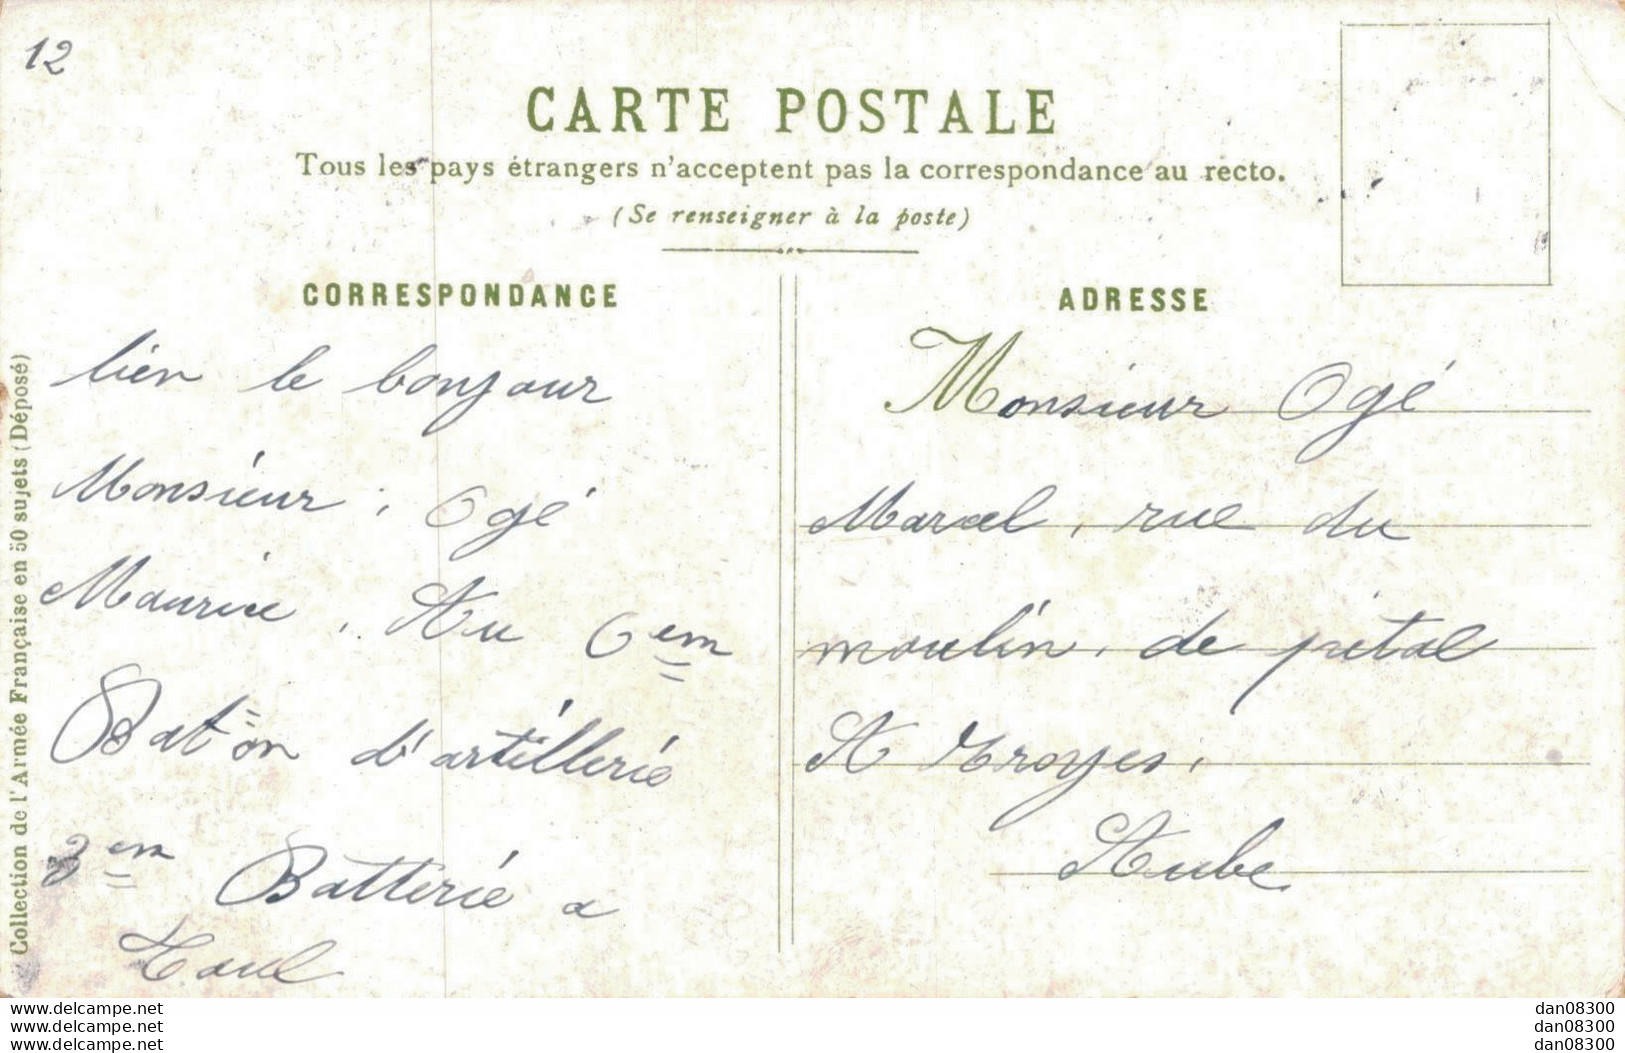 12
CARTE POSTALE
Tous les pays étrangers n'acceptent pas la correspondance au recto.
(Se renseigner à la poste)
CORRESPONDANCE
bien le bonjour
Monsieur, Ogé
Maurice, Au 6em
Bat=on d'artillerie
3em Batterie a
Toul
ADRESSE
Monsieur Ogé
Marcel, rue du
moulin. de pétal
A Troyes,
Aube
Collection de l'Armée Française en 50 sujets (Déposé)
www.delcampe.net
www.delcampe.net
www.delcampe.net
dan08300
dan08300
dan08300